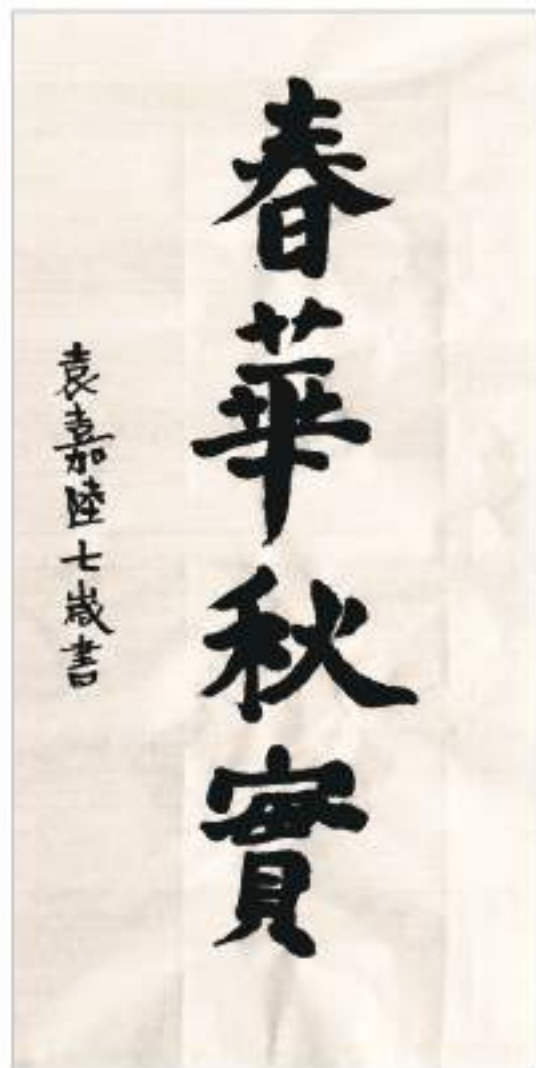 春華秋實
袁嘉陸七歲書